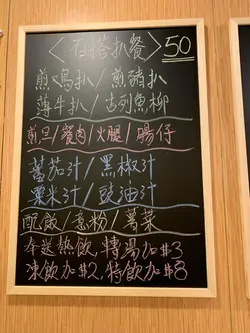 〈自搭扒餐〉50
煎雞扒/煎豬扒
薄牛扒/吉列魚柳
煎旦/餐肉/火腿/腸仔
蕃茄汁/黑椒汁
粟米汁/豉油汁
配飯/意粉/薯菜
奉送熱飲,轉湯加$3
凍飲加$2,特飲加$8